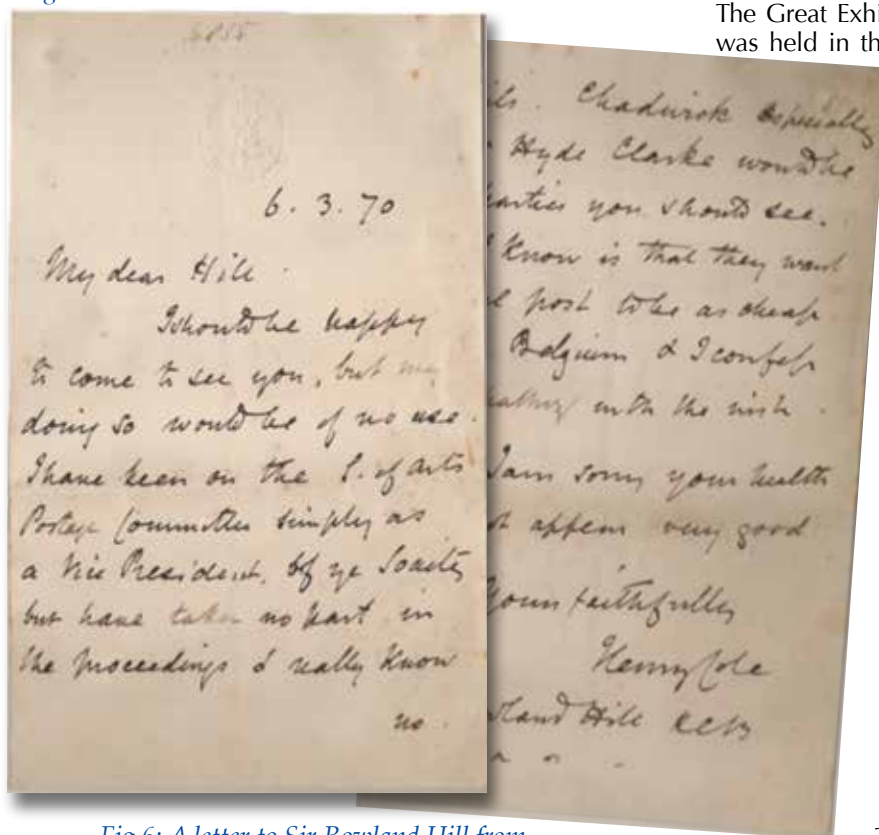 The Great Exhi
was held in th
6.3.70
My dear Hill.
I should be happy
to come to see you, but my
doing so would be of no use.
I have been on the S. of Arts
Postage Committee simply as
a Vice President, of ye Society
but have taken no part in
the proceedings & really know
no.
ils. Chadwick especially
Hyde Clarke would be
parties you should see.
I know is that they want
l post to be as cheap
Belgium & I confess
with the wish.
I am sorry your health
t appear very good
Yours faithfully
Henry Cole
wland Hill KCB
Fig 6: A letter to Sir Rowland Hill from